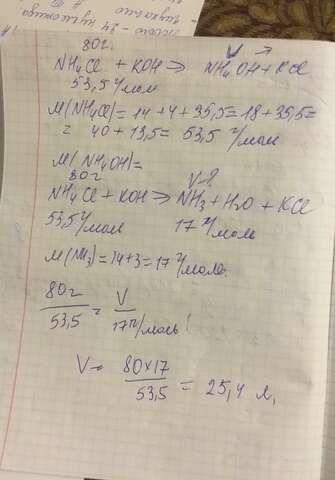 80г.
NH₄Cl + KOH ⇒ NH₄OH + KCl
53,5 г/моль
M(NH₄Cl) = 14 + 4 + 35,5 = 18 + 35,5 =
= 40 + 13,5 = 53,5 г/моль
M(NH₄OH)=
80г V-?
NH₄Cl + KOH ⇒ NH₃ + H₂O + KCl
53,5 г/моль 17 г/моль
M(NH₃) = 14+3 = 17 г/моль.
80г / 53,5 = V / 17г/моль
V = 80×17 / 53,5 = 25,4 л,